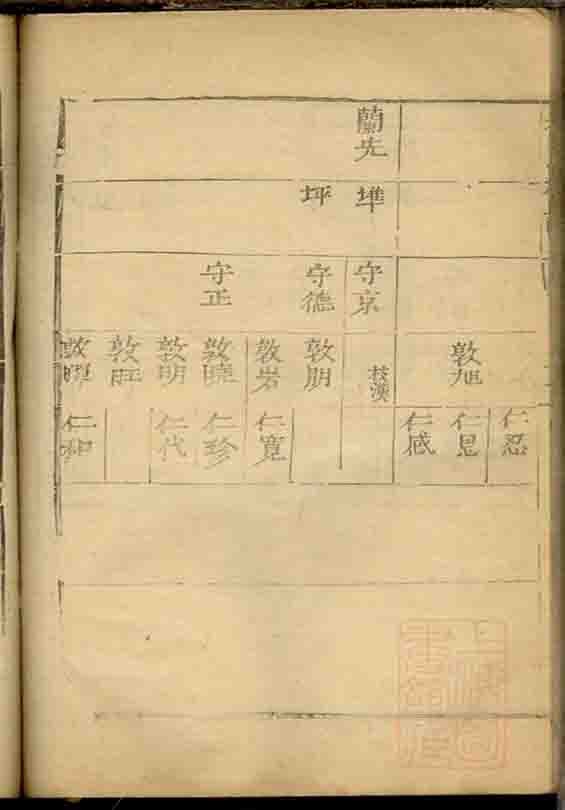 蘭先
坪
守京
守德
守正
敦旭
敦朋
敦岩
敦曉
敦明
敦旺
仁忍
仁恩
仁感
仁寬
仁珍
仁代
仁和